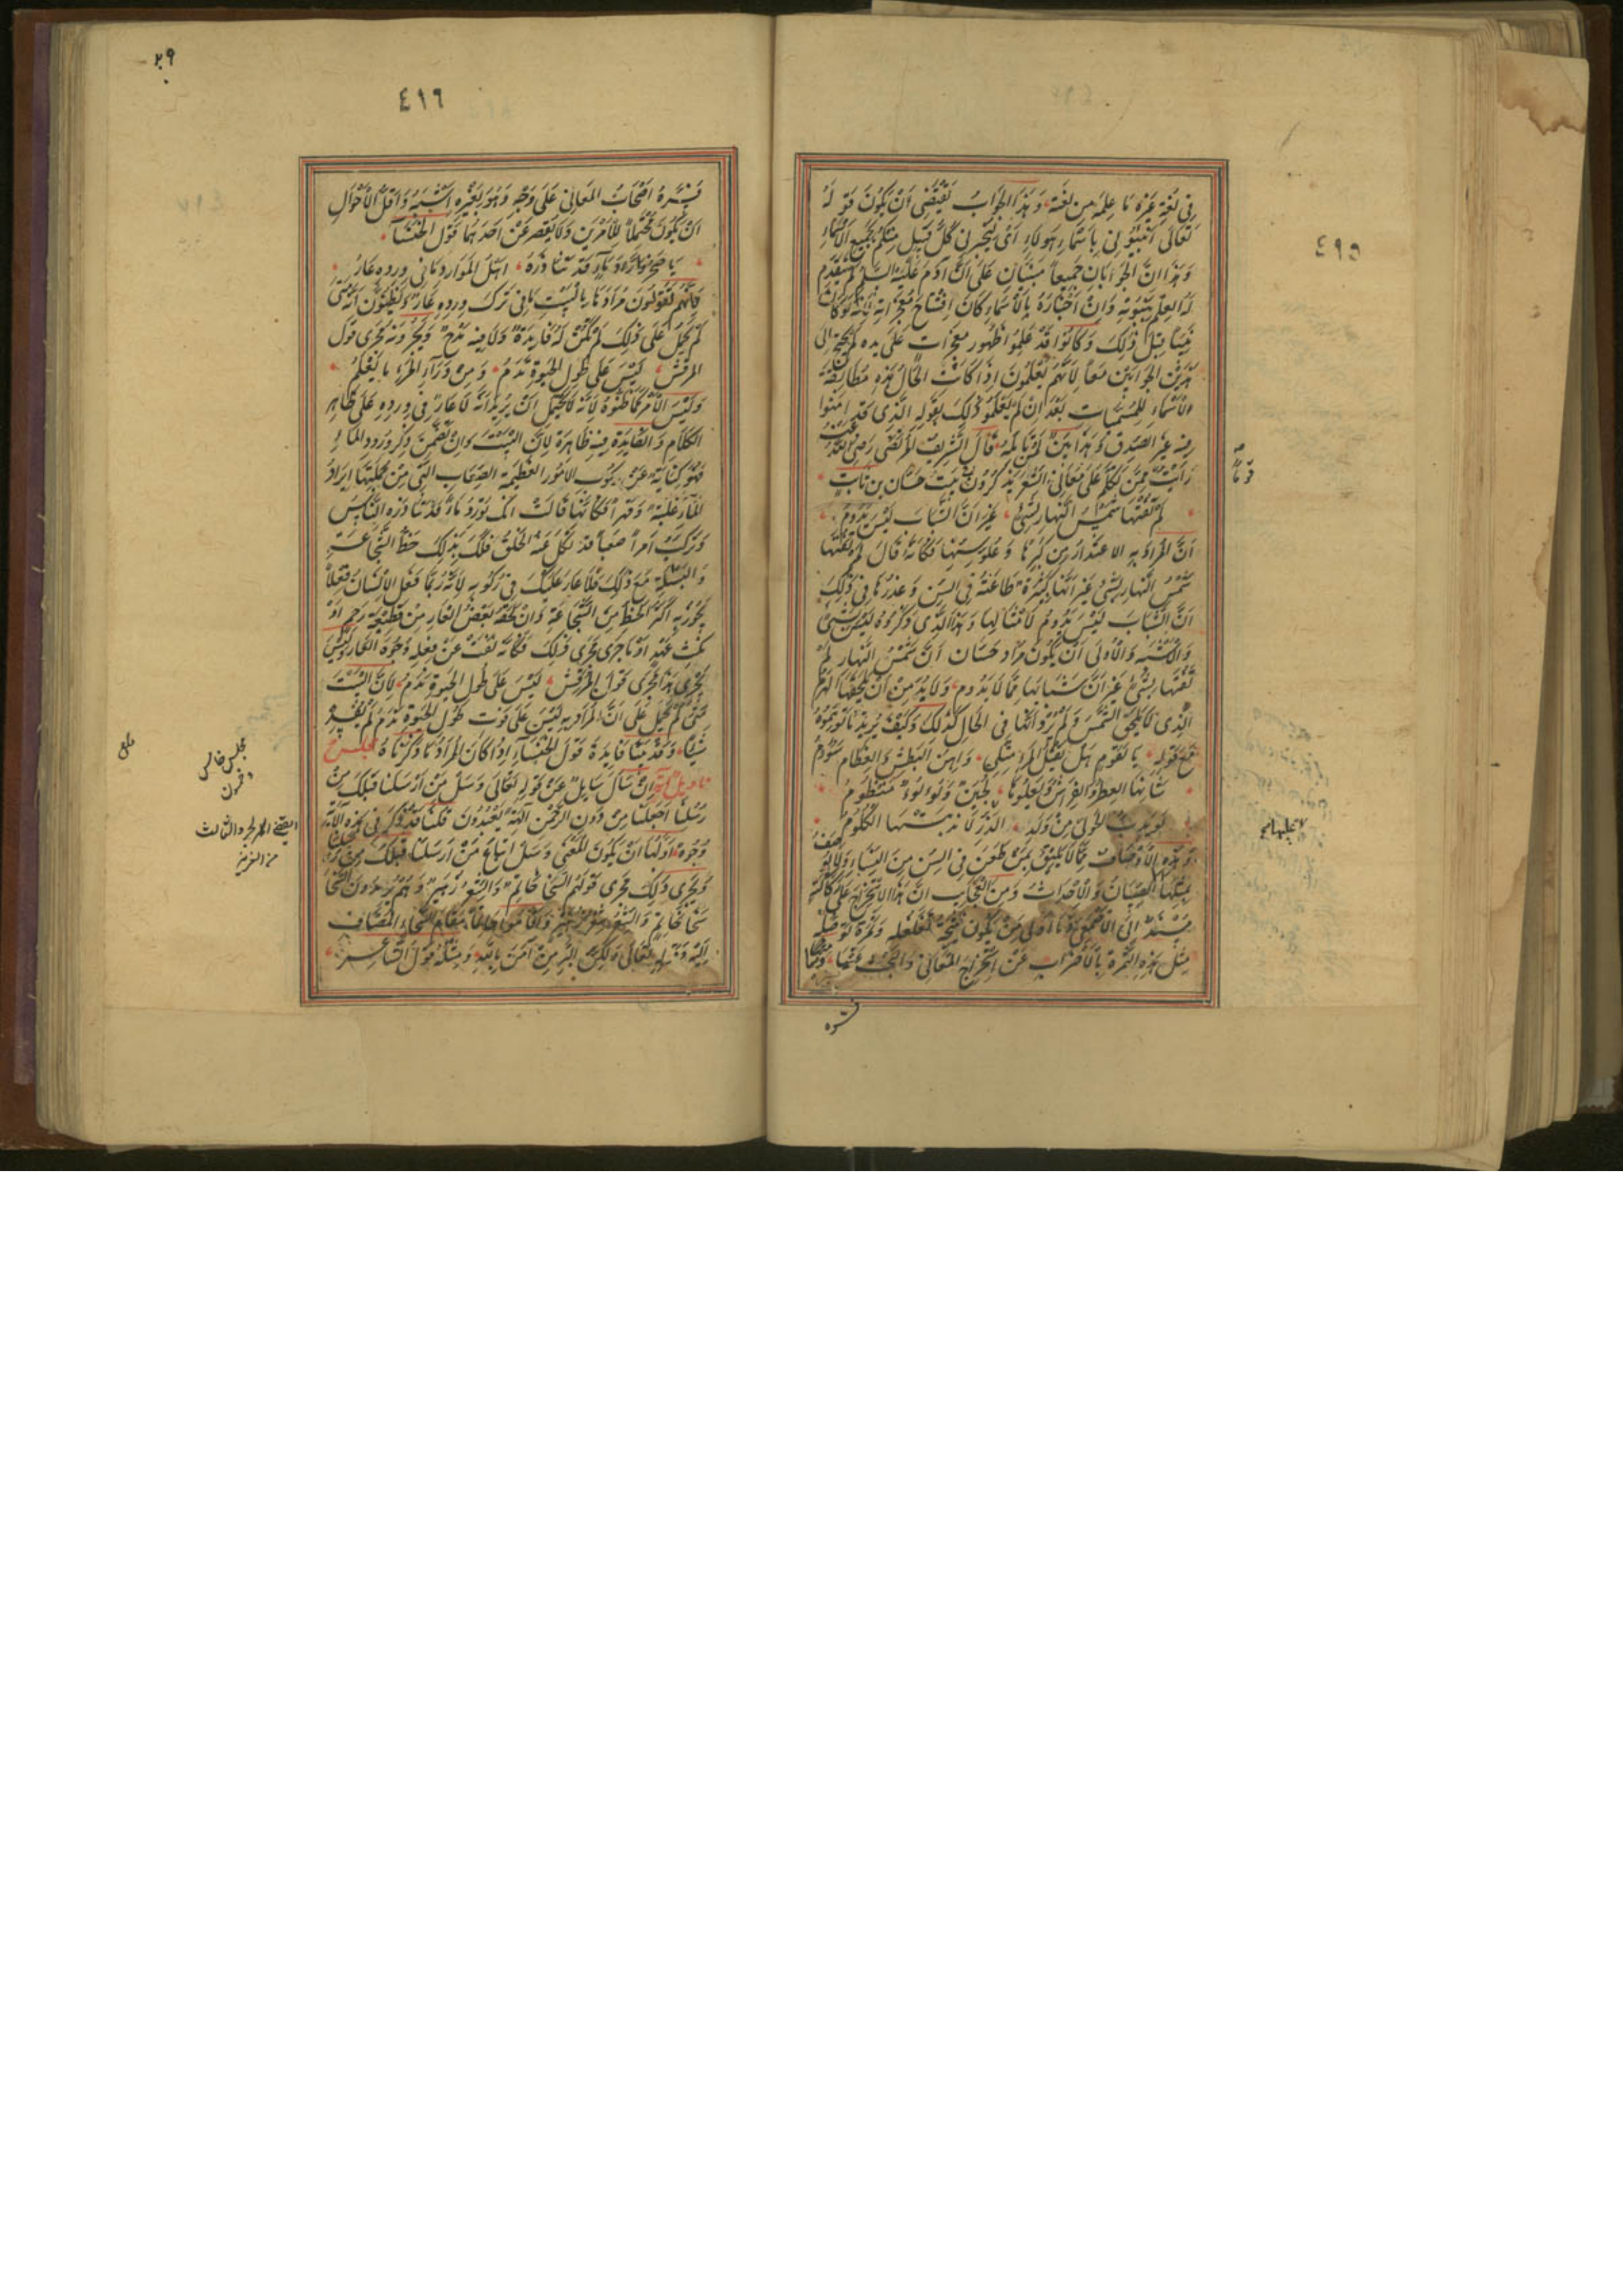 ٤٩٥
في لغة غيره ما علمه من لغة وهذا الجواب يقتضي أن يكون قوله
تعالى أنبئوني بأسماء هولاء أي ليخبرني كل قبيل منكم بجميع الأسماء
وهذان الجوابان جميعاً مبنيان على أنّ ادم عليه السلم لم يتقدم
له العلم بنبوته وانّ اخباره بالاسماء كان افتتاح معجزاته لأنه لو كان
نبياً قبل ذلك وكانوا قد علموا ظهور معجزات على يده لم يحتج الى
هذين الجوابين معاً لأنهم يعلمون اذا كانت الحال هذه مطابقة
الأسماء للمسميات بعد ان لم يعلموا ذلك بقوله الذي قد امنوا
فيه غير الصدق وهذا بيّن لمن تأمله قال الشريف المرتضى رضي الله عنه
رأيت ممن تكلم على معاني الشعر يذكرون بيت حسان بن ثابت
لم تفتها شمس النهار بشيء غير انّ الشباب ليس يدوم
انّ المراد به الاعتذار من كبرها وعلو سنها فكأنه قال لم تفتها
شمس النهار بشيء غير أنها كبيرة طاعنة في السن وعذرها في ذلك
انّ الشباب ليس يدوم لأمثالها وهذا الذي ذكروه ليس بشيء
والأشبه والأولى أن يكون مراد حسان انّ شمس النهار لم
تفتها بشيء غير انّ شبابها مما لا يدوم ولا بد من أن يلحقها الهرم
الذي لا يلحق الشمس ولم يرد أنها في الحال كذلك وكيف يريد ما توهموه
مع قوله يا لقوم هل يقتل المرء مثلي واهن البطش والعظام سئوم
شأنها العطر والفراش ويعلوها لجين ولؤلؤ منظوم
لو يدب الحولي من ولد الذر لأندبتها الكلوم
وهذه الأوصاف مما لا يليق بمن طعن في السن من النساء ولا يوصف
بمثلها الا الصبيان والأحداث ومن العجايب انّ هذا الاستخراج على
مسند الى الاصمعي وما أولى من يكون نتيجة تغلغله وثمرة توصله
مثل هذه الثمرة بالأضراب عن استخراج المعاني والبحث عنها ومما
فسّره
٢٩
٤٩٦
فسّره أصحاب المعاني على وجه وهو بغيره أشبه وأقل الأحوال
أن يكون محتملاً للأمرين ولا يقصر عن احدهما قول الخنساء
يا صخر ورّاد ماء قد تناذره اهل الموارد ما في ورده عار
فانهم يقولون مرادها بالبيت ما في ترك ورده عار ويظنون أنه متى
لم يحمل على ذلك لم تكن له فايدة ولا فيه مدح ويجرونه مجرى قول
المرقش ليس على طول الحيوة ندم ومن وراء المرء ما يعلم
وليس الأمر كما ظنوه لأنه لا يحتمل ان يريد انه لا عار في ورده على ظاهر
الكلام والفايدة فيه ظاهرة لأن البيت وان تضمن ذكر ورود الماء
فهو كناية عن ركوب الامور العظيمة الصعاب التي من جملتها ايراد
الماء غلبة وقهراً فكانها قالت انك تورد ماء قد تناذره الناس
وتركب امراً صعباً قد نكل عنه الخلق فلك بذلك حظ الشجاعة
والبسالة مع ذلك فلا عار عليك في ركوبه لأنه ربما فعل الانسان فعلاً
يحوز به اكثر الحظ من الشجاعة وان لحقه بعض العار من قطيعة رحم او
نكث عهد او ما جرى مجرى ذلك فكأنه نفت عن فعله وجوه العار وليس
يجري هذا مجرى قول المرقش ليس على طول الحيوة ندم لأنّ البيت
متى لم يحمل على انّ المراد به ليس على فوت طول الحيوة ندم لم يفد
شيئاً وقد بيّنا فايدة قول الخنساء اذا كان المراد ما ذكرناه مجلس
تأويل آية ان سأل سايل عن قوله تعالى وسل من ارسلنا قبلك من
رسلنا أجعلنا من دون الرحمن آلهة يعبدون قلنا قد ذكر في هذه الآية
وجوه أولها أن يكون المعنى وسل اتباع من أرسلنا قبلك من رسلنا
ويجري ذلك مجرى قولهم السخا حاتم والشعر زهير وهم يريدون السخا
سخا حاتم والشعر شعر زهير وأقاموا حاتماً مقام السخاء المضاف
اليه ومثله تعالى ولكن البر من آمن بالله ومثله قول الشاعر
مجلس خامس
وعشرون